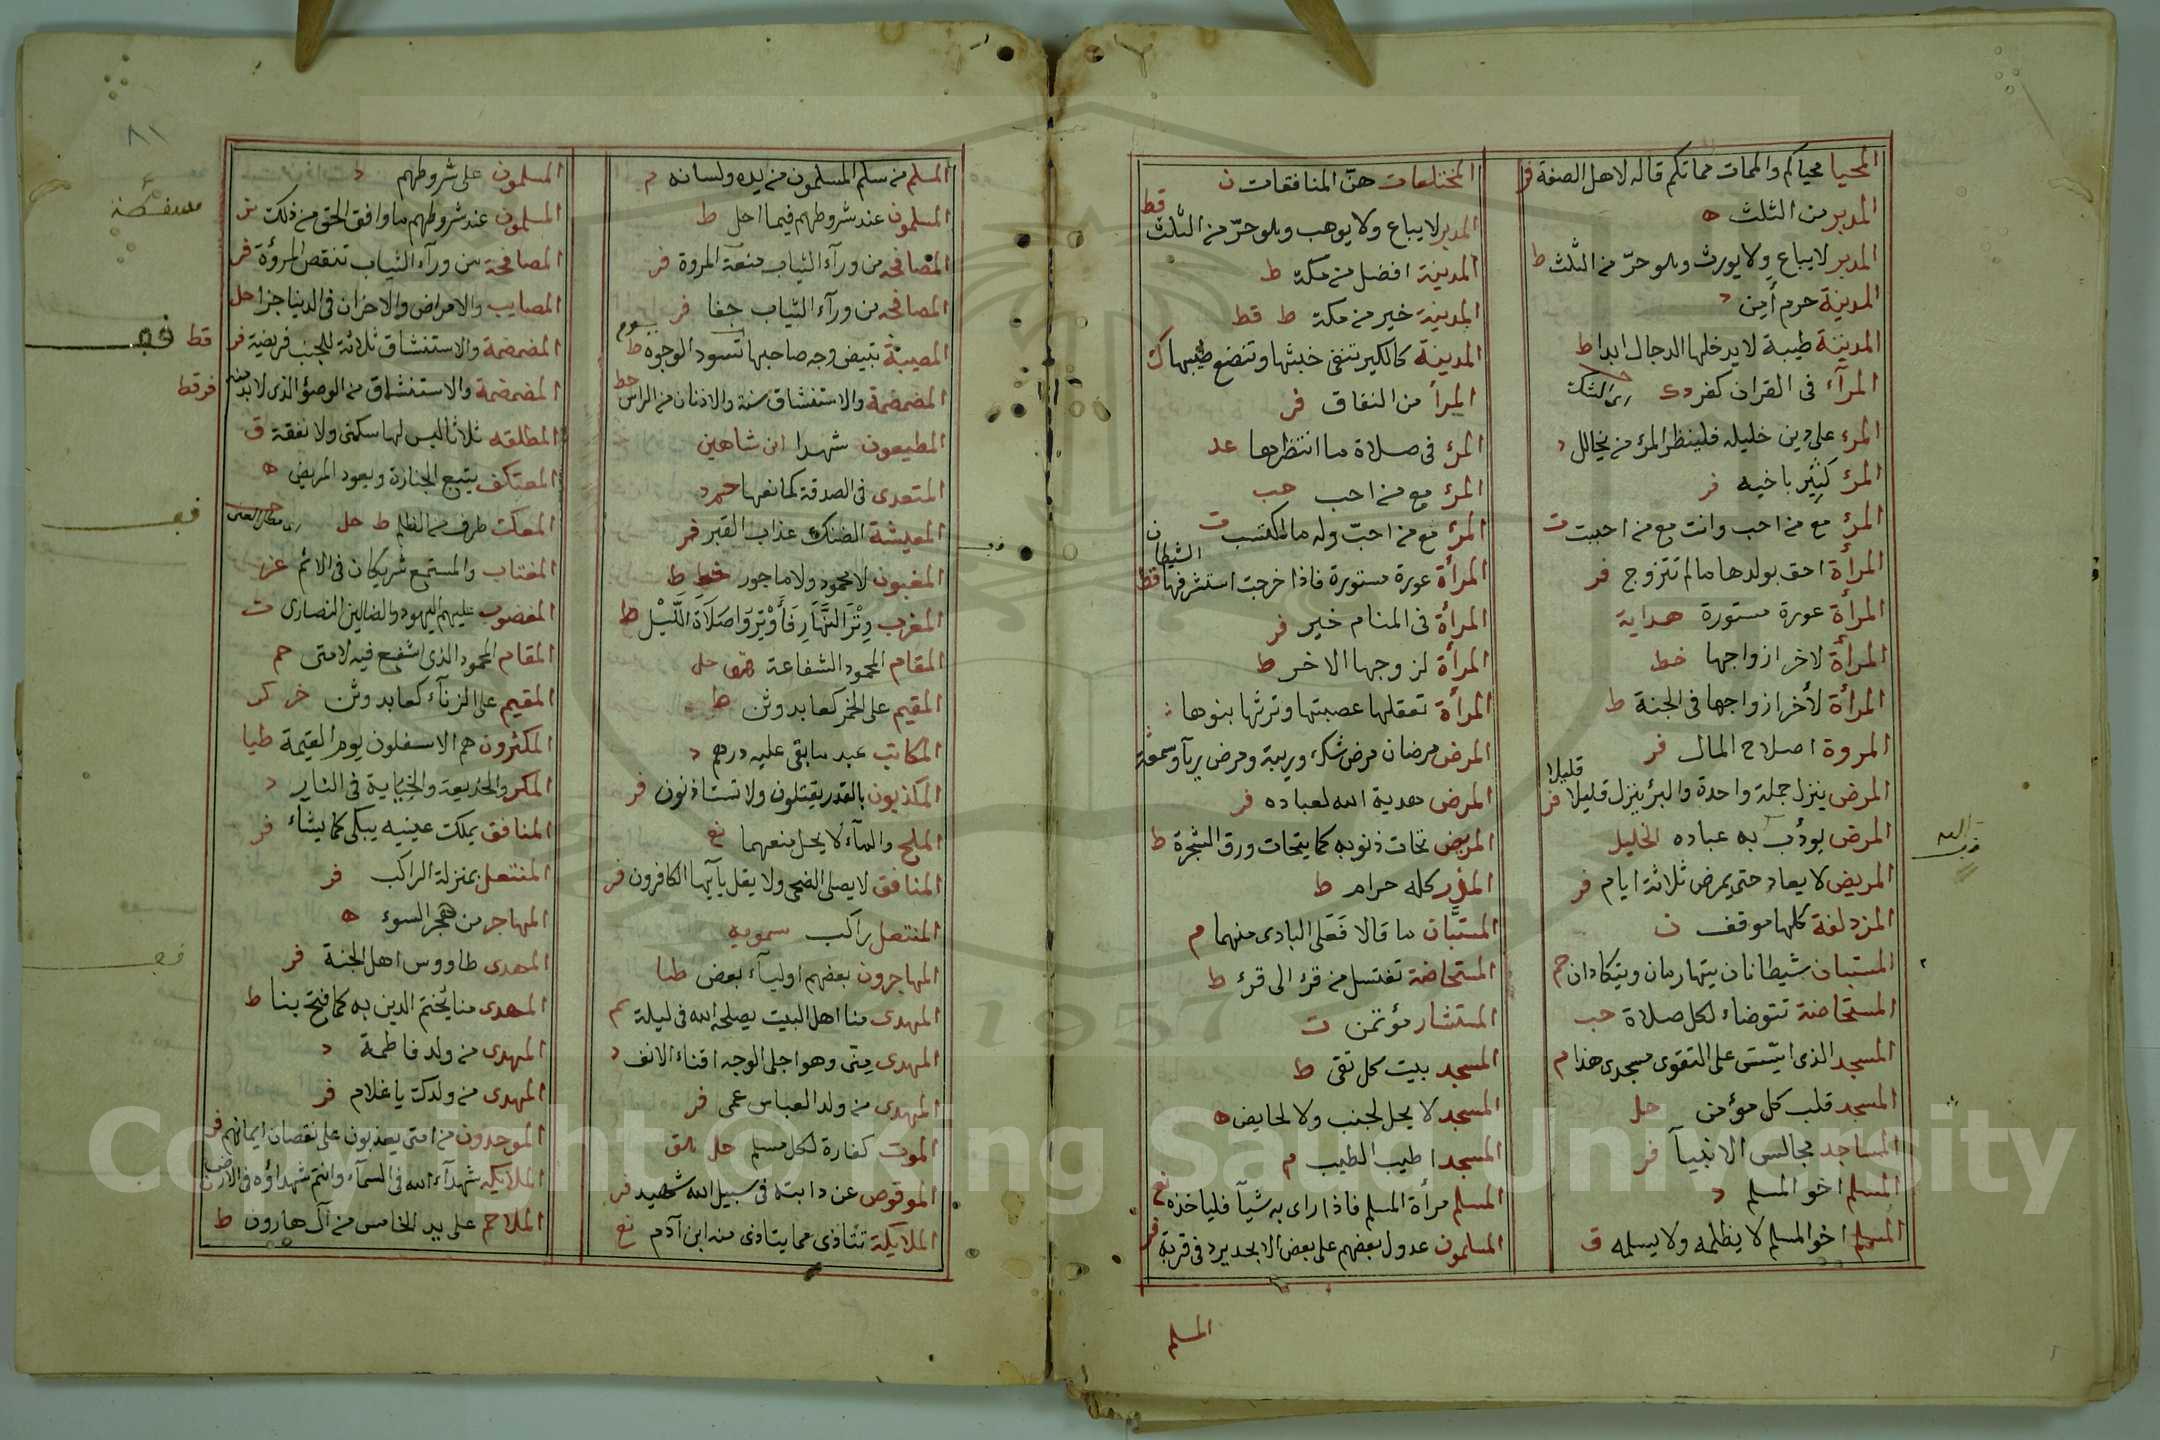 المحيا محياكم والممات مماتكم قاله لاهل الصفة فر
المدبر من الثلث ه
المدبر لايباع ولا يورث وهو حرّ من الثلث ط
المدينة حرم أمن د
المدينة طيبة لا يدخلها الدجال ابدا ط
المرآء فى القران كفر دك
المرء على دين خليله فلينظر المرء من يخالل د
المرء كثير باخيه فر
المرء مع من احب وانت مع من احببت ت
المرأة احق بولدها مالم تتزوج فر
المرأة عورة مستورة هداية
المرأة لاخر ازواجها خط
المرأة لأخر ازواجها فى الجنة ط
المروة اصلاح المال فر
المرض ينزل جملة واحدة والبرء ينزل قليلا قليلا فر
المرض يودّب به عباده الخليل
المريض لا يعاد حتى يمرض ثلاثة ايام فر
المزدلفة كلها موقف ن
المستبان شيطانان يتهاريمان ويتكاذبان حم
المستحاضة تتوضاء لكل صلاة حب
المسجد الذى اسّس على التقوى مسجدى هذا م
المسجد قلب كل مؤمن حل
المساجد مجالس الانبيآ فر
المسلم اخو المسلم د
المسلم اخو المسلم لا يظلمه ولا يسلمه ق
المختلعات هنّ المنافقات ن
المدبر لا يباع ولا يوهب وهو حرّ من الثلث قط
المدينة افضل من مكة ط
المدينة خير من مكة ط قط
المدينة كالكير تنفى خبثها وتنصع طيبها ك
المرأ من النفاق فر
المرء فى صلاة ما انتظرها عد
المرء مع من احب حب
المرء مع من احبّ وله ما اكتسب ت
المرأة عورة مستورة فاذا خرجت استشرفها الشيطان قط
المرأة فى المنام خير فر
المرأة لزوجها الاخر ط
المرأة تعقلها عصبتها وترثها بنوها
المرض مرضان مرض شك وريبة ومرض ريآ وسمعة
المرض هدية الله لعباده فر
المريض تحات ذنوبه كما يتحات ورق الشجرة ط
المزر كله حرام ط
المستبّان ما قالا فعلى البادى منهما م
المستحاضة تغتسل من قرء الى قرء ط
المستشار مؤتمن ت
المسجد بيت كل تقى ط
المسجد لا يحل لجنب ولا لحايض ه
المسك اطيب الطيب م
المسلم مرأة المسلم فاذا راى به شيآ فلياخذه نع
المسلمون عدول بعضهم على بعض الا محدود فى قرية فر
المسلم
المسلم من سلم المسلمون من يده ولسانه م
المسلمون عند شروطهم فيما احل ط
المصافحه من ورآء الثياب منعة المروة فر
المصافحه من ورآء الثياب جفا فر
المصيبة تبيض وجه صاحبها يوم تسود الوجوه ط
المضمضة والاستنشاق سنة والاذنان من الراس خط
المطيعون شهدا ابن شاهين
المتعدى فى الصدقة كمانعها حم د
المعيشة الضنك عذاب القبر فر
المغبون لا محمود ولا ماجور خط ط
المغرب وِتْرَ النَّهَارِ فَأَوْتِرَوا صَلَاةَ اللَّيْل ط
المقام المحمود الشفاعة حل
المقيم على الخمر كعابد وثن ط
المكاتب عبد ما بقى عليه درهم د
المكذبون بالقدر يقتلون ولا تستاذنون فر
الملح والمآء لا يحل منعهما نع
المنافق لا يصلى الضحى ولا يقل يآيها الكافرون فر
المنتعل راكب سمويه
المهاجرون بعضهم اوليآء بعض طيا
المهدى منا اهل البيت يصلحه الله فى ليلة حم
المهدى منى وهو اجلى الوجه اقناء الانف د
المهدى من ولد العباس عمى فر
الموت كفارة لكل مسلم حل هق
الموقوص عن دابته فى سبيل الله شهيد فر
الملايكة تتاذى مما يتاذى منه ابن آدم نع
المسلمون على شروطهم د
المسلمون عند شروطهم ما وافق الحق من ذلك
المصافحة من ورآء الثياب تنقص المروءة فر
المصايب والامراض والاحزان فى الدنيا جزا حل
المضمضة والاستنشاق ثلاثة للجنب فريضة فر قط
المضمضة والاستنشاق من الوضوء الذى لا بد منه فر قط
المطلقه ثلاثا ليس لها سكنى ولا نفقة ق
المعتكف يتبع الجنازة ويعود المريض ه
المعك طرف من الظلم ط حل
المغتاب والمستمع شريكان فى الاثم غز
المغضوب عليهم اليهود والضالين النصارى ت
المقام المحمود الذى اشفع فيه لامتى حم
المقيم على الزنآء كعابد وثن خر كر
المكثرون هم الاسفلون يوم القيمة طيا
المكر والخديعة والخيانة فى النار د
المنافق يملك عينيه يبكى كما يشآء فر
المنتعل بمنزلة الراكب فر
المهاجر من هجر السوء ه
المهدى طاووس اهل الجنة فر
المهدى منا يختم الدين به كما فتح بنا ط
المهدى من ولد فاطمة د
المهدى من ولدك يا غلام فر
الموحدون من امتى يعذبون على نقصان ايمانهم فر
الملايكه شهدآء الله فى السمآء وانتم شهداؤه فى الارض
الملاحم على يد الخامس من آل هارون ط
٨١
1957
Copyright © King Saud University